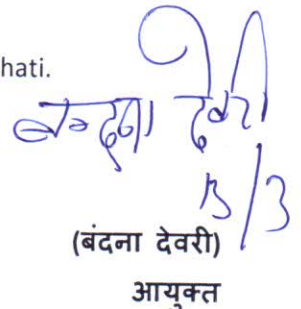 hati.
बन्दना देवरी
13/3
(बंदना देवरी)
आयुक्त